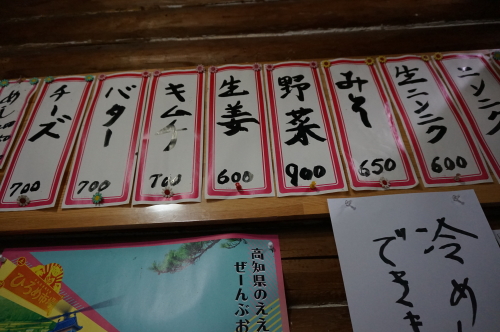 チーズ
700
バター
700
キムチ
700
生姜
600
野菜
900
みそ
650
生ニンニク
600
ニンニク
冷めし
できま
高知県のええ
ぜーんぶお